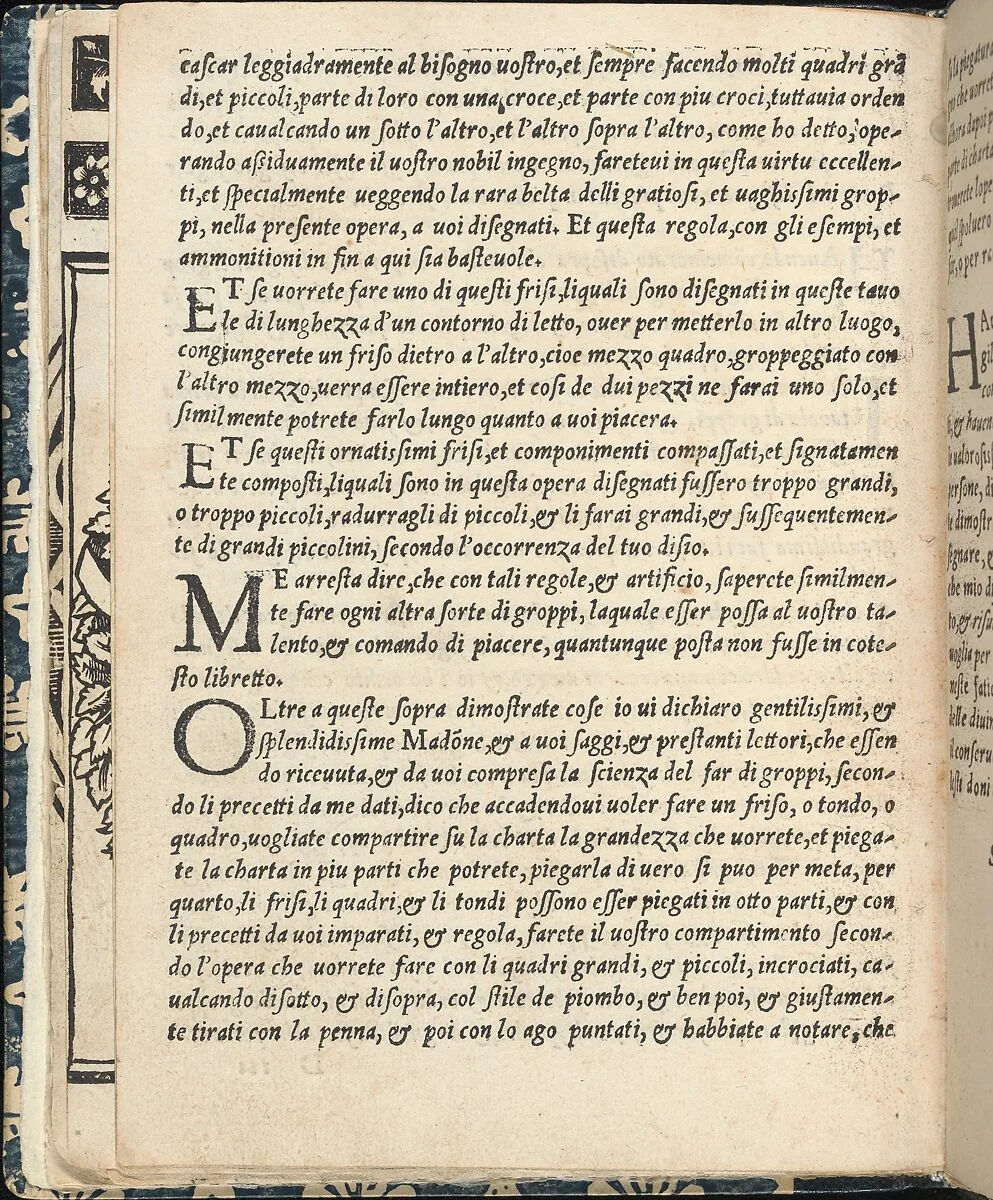 cascar leggiadramente al bisogno uostro,et sempre facendo molti quadri grā
di,et piccoli,parte di loro con una croce,et parte con piu croci,tuttauia orden
do,et caualcando un sotto l'altro,et l'altro sopra l'altro, come ho detto, ope-
rando assiduamente il uostro nobil ingegno, fareteui in questa virtu eccellen-
ti,et specialmente ueggendo la rara belta delli gratiosi, et uaghissimi grop-
pi, nella presente opera, a uoi disegnati. Et questa regola,con gli esempi, et
ammonitioni in fin a qui sia basteuole.
ET se uorrete fare uno di questi frisi,liquali sono disegnati in queste tauo
le di lunghezza d'un contorno di letto, ouer per metterlo in altro luogo,
congiungerete un friso dietro a l'altro,cioe mezzo quadro,groppeggiato con
l'altro mezzo,uerra essere intiero,et cosi de dui pezzi ne farai uno solo,et
similmente potrete farlo lungo quanto a uoi piacera.
ET se questi ornatissimi frisi,et componimenti compassati,et signatamen
te composti,liquali sono in questa opera disegnati fussero troppo grandi,
o troppo piccoli,radurragli di piccoli,& li farai grandi,& sussequentemen-
te di grandi piccolini, secondo l'occorrenza del tuo disio.
ME arresta dire,che con tali regole,& artificio, saperete similmen-
te fare ogni altra sorte di groppi, laquale esser possa al uostro ta-
lento,& comando di piacere, quantunque posta non fusse in cote-
sto libretto.
OLtre a queste sopra dimostrate cose io ui dichiaro gentilissimi,&
splendidissime Madōne,& a uoi saggi,& prestanti lettori,che essen
do riceuuta,& da uoi compresa la scienza del far di groppi, secon-
do li precetti da me dati,dico che accadendoui uoler fare un friso, o tondo, o
quadro,uogliate compartire su la charta la grandezza che uorrete,et piega-
te la charta in piu parti che potrete, piegarla di uero si puo per meta, per
quarto,li frisi,li quadri,& li tondi possono esser piegati in otto parti,& con
li precetti da uoi imparati, & regola, farete il uostro compartimento secon-
do l'opera che uorrete fare con li quadri grandi, & piccoli, incrociati, ca-
ualcando disotto, & disopra, col stile de piombo, & ben poi, & giustamen-
te tirati con la penna, & poi con lo ago puntati, & habbiate a notare, che